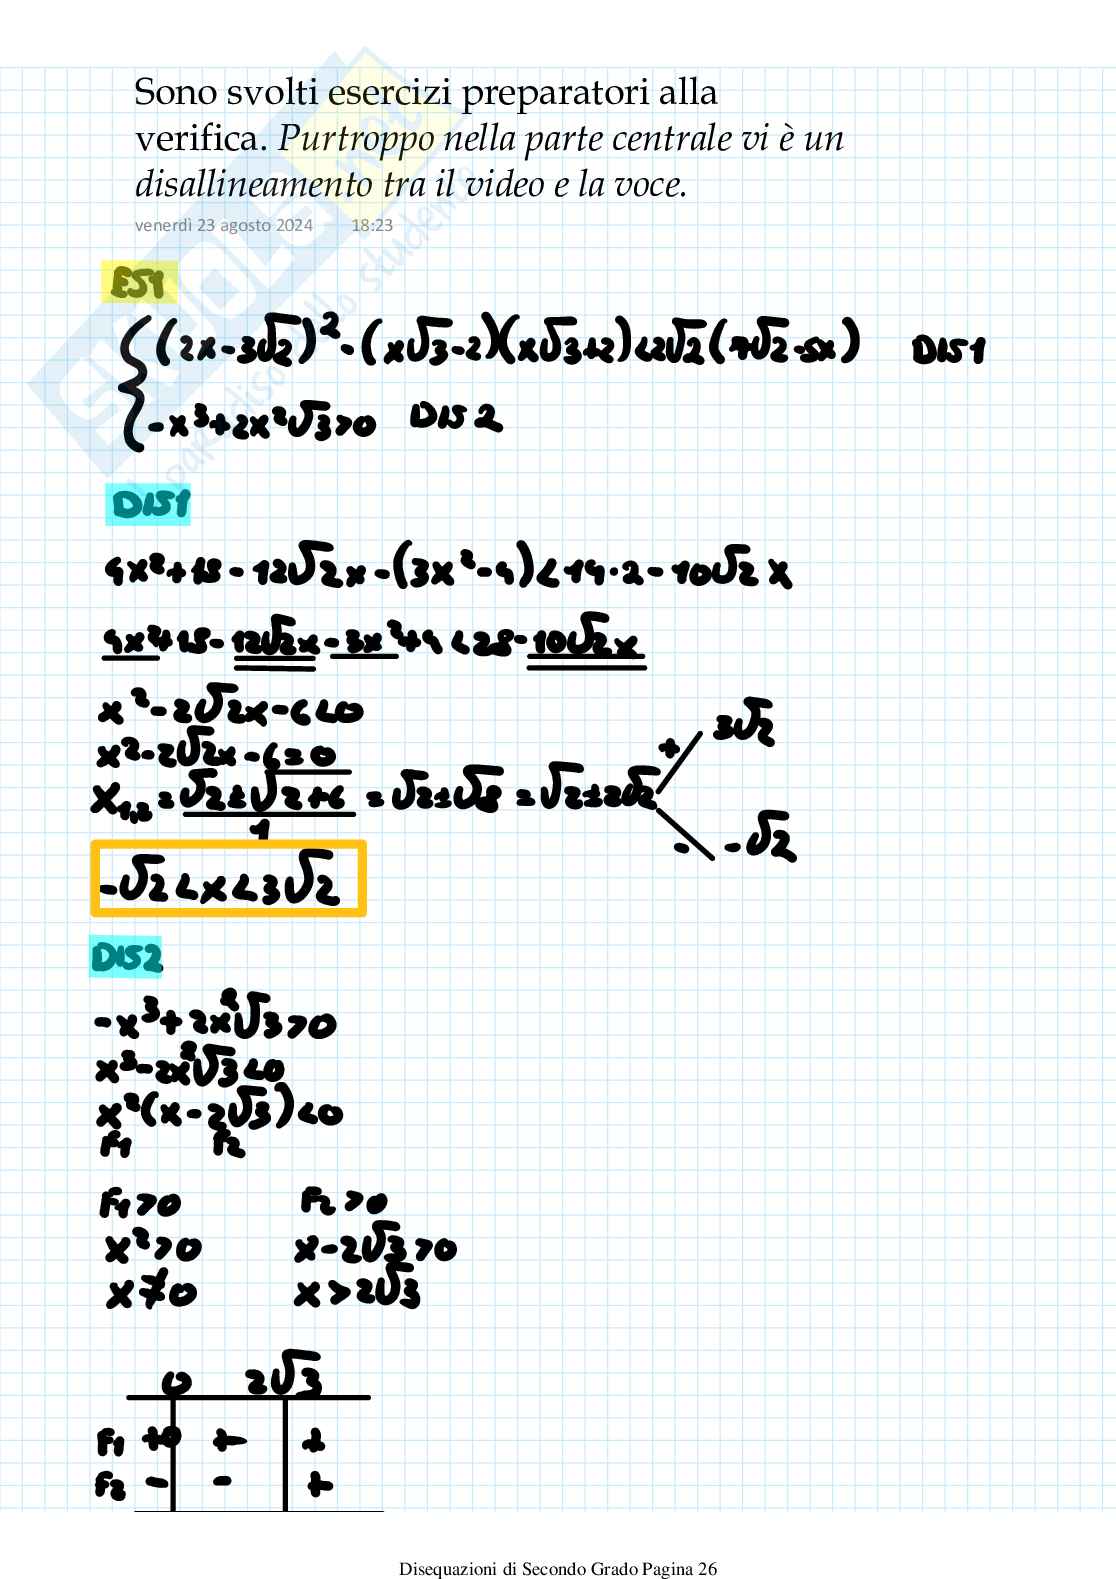 Sono svolti esercizi preparatori alla
verifica. Purtroppo nella parte centrale vi è un
disallineamento tra il video e la voce.
venerdì 23 agosto 2024 18:23
ES1
(2x-3√2)²-(x√3-2)(x√3+2)<2√2(7√2-5x) DIS1
-x³+2x²√3>0 DIS2
DIS1
4x²+18-12√2x-(3x²-4)<14·2-10√2x
4x²+18-12√2x-3x²+4<28-10√2x
x²-2√2x-6<0
x²-2√2x-6=0
x1,2=(√2±√2+6)/1=√2±√8=√2±2√2
+ 3√2
- -√2
-√2<x<3√2
DIS2
-x³+2x²√3>0
x³-2x²√3<0
x²(x-2√3)<0
F1 F2
F1>0 F2>0
x²>0 x-2√3>0
x≠0 x>2√3
0 2√3
F1 +0 + +
F2 - - +
Disequazioni di Secondo Grado Pagina 26